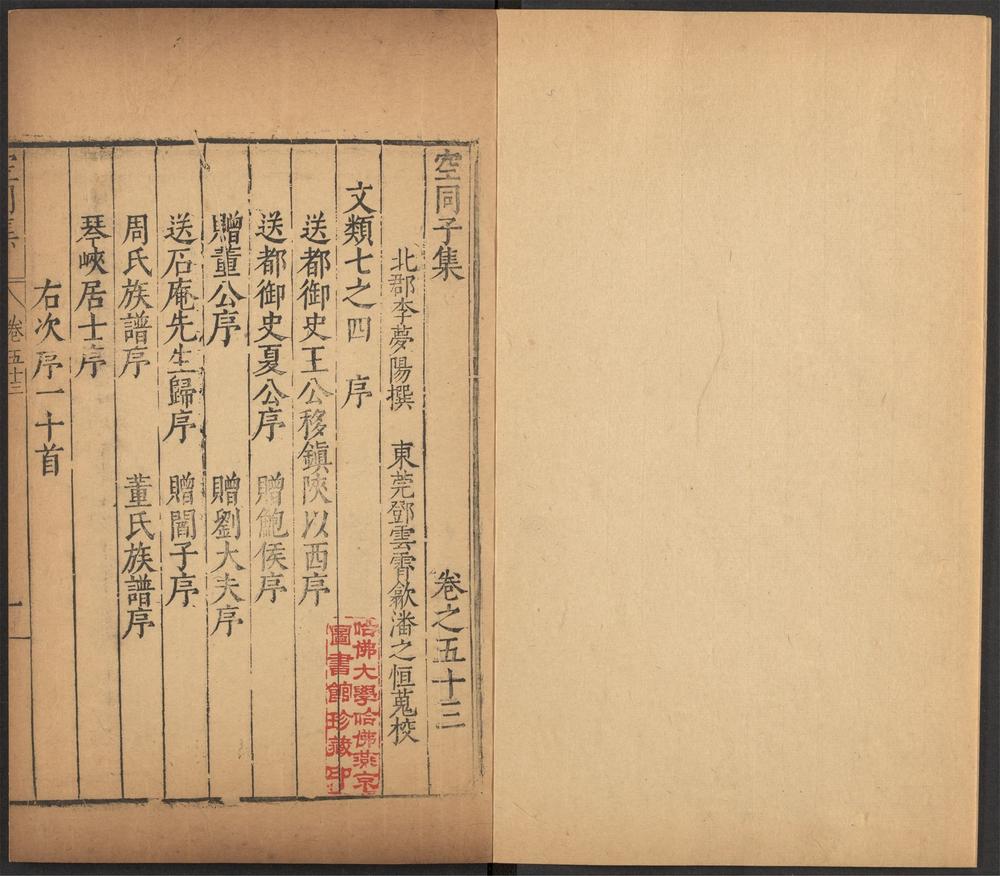 空同子集 卷之五十三
北郡李夢陽撰 東莞鄧雲霄歙潘之恒蒐校
文類七之四 序
送都御史王公移鎮陝以西序
送都御史夏公序 贈鮑侯序
贈董公序 贈劉大夫序
送石庵先生歸序 贈閻子序
周氏族譜序 董氏族譜序
琴峽居士序
右次序一十首
空同集 卷五十三 一
哈佛大學哈佛燕京
圖書館珍藏印